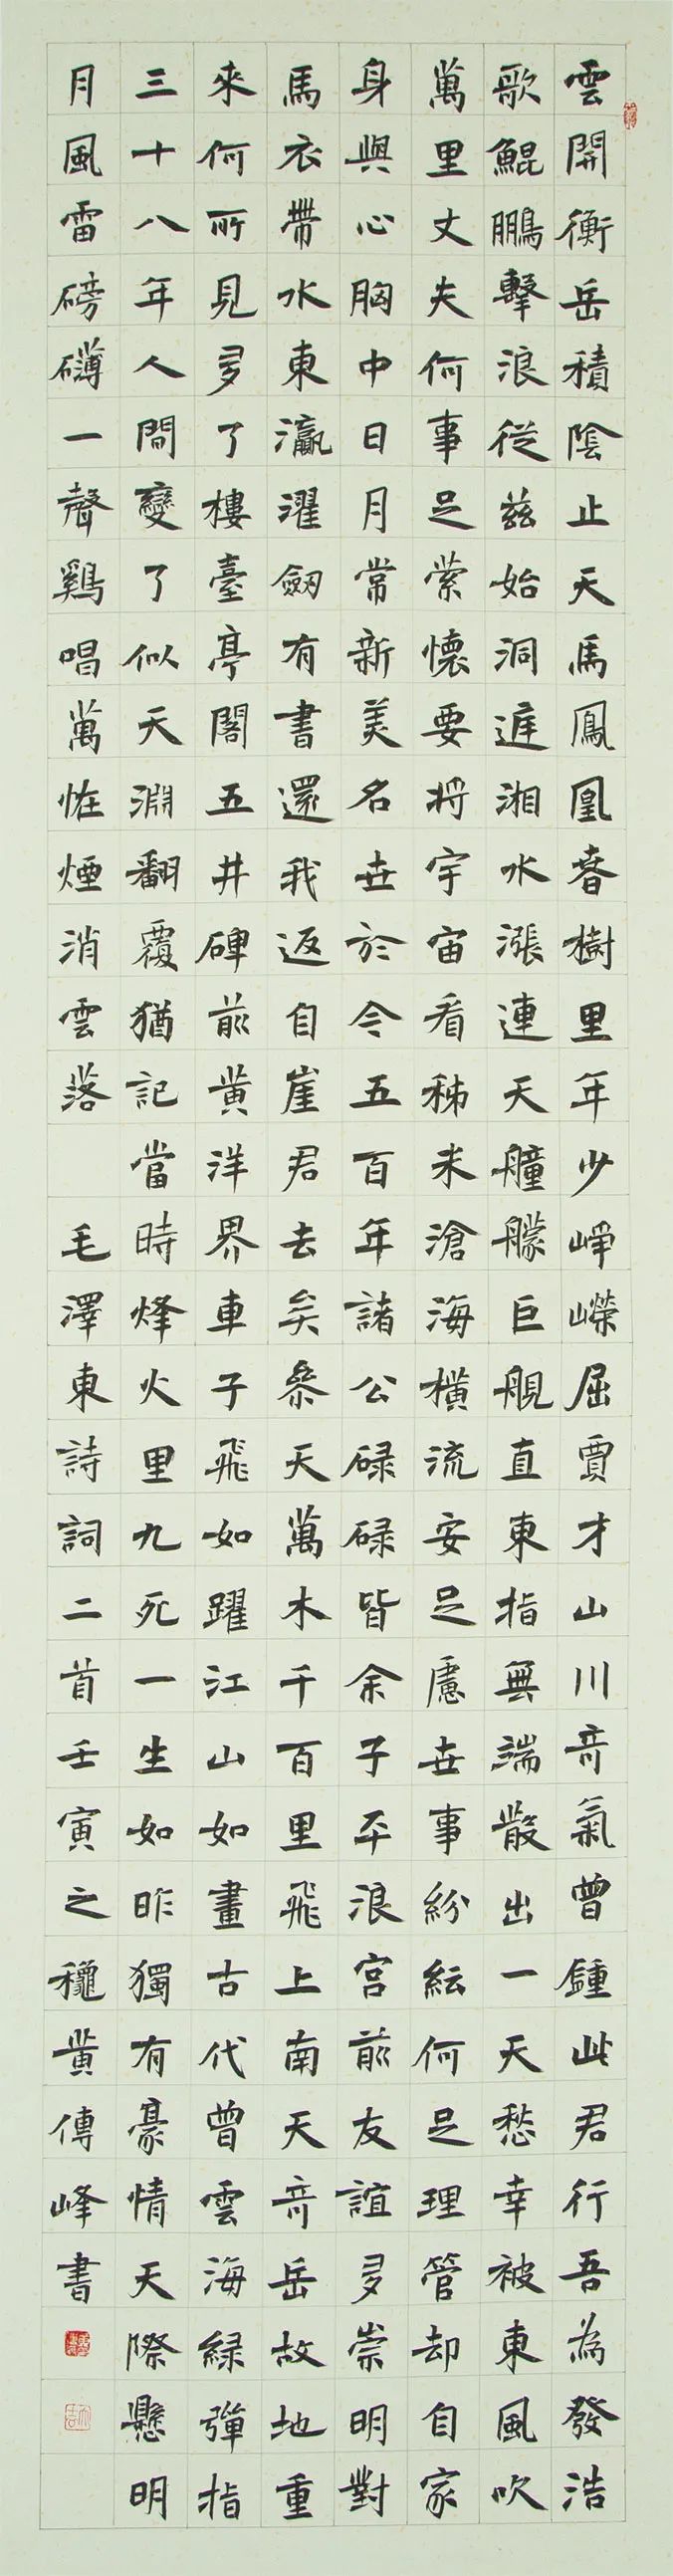 雲開衡岳積陰止天馬鳳凰春樹里年少崢嶸屈賈才山川奇氣曾鍾此君行吾為發浩
歌鯤鵬擊浪從茲始洞庭湘水漲連天艟艨巨舰直東指無端散出一天愁幸被東風吹
萬里丈夫何事足縈懷要將宇宙看稊米滄海橫流安足慮世事紛紜何足理管却自家
身與心胸中日月常新美名世於今五百年諸公碌碌皆余子平浪宮前友誼多崇明對
馬衣帶水東瀛濯劒有書還我返自崖君去矣參天萬木千百里飛上南天奇岳故地重
來何所見多了樓臺亭閣五井碑前黃洋界車子飛如躍江山如畫古代曾雲海綠彈指
三十八年人間變了似天淵翻覆猶記當時烽火里九死一生如昨獨有豪情天際懸明
月風雷磅礴一聲鷄唱萬怪煙消雲落 毛澤東詩詞二首壬寅之龝黃傳峰書